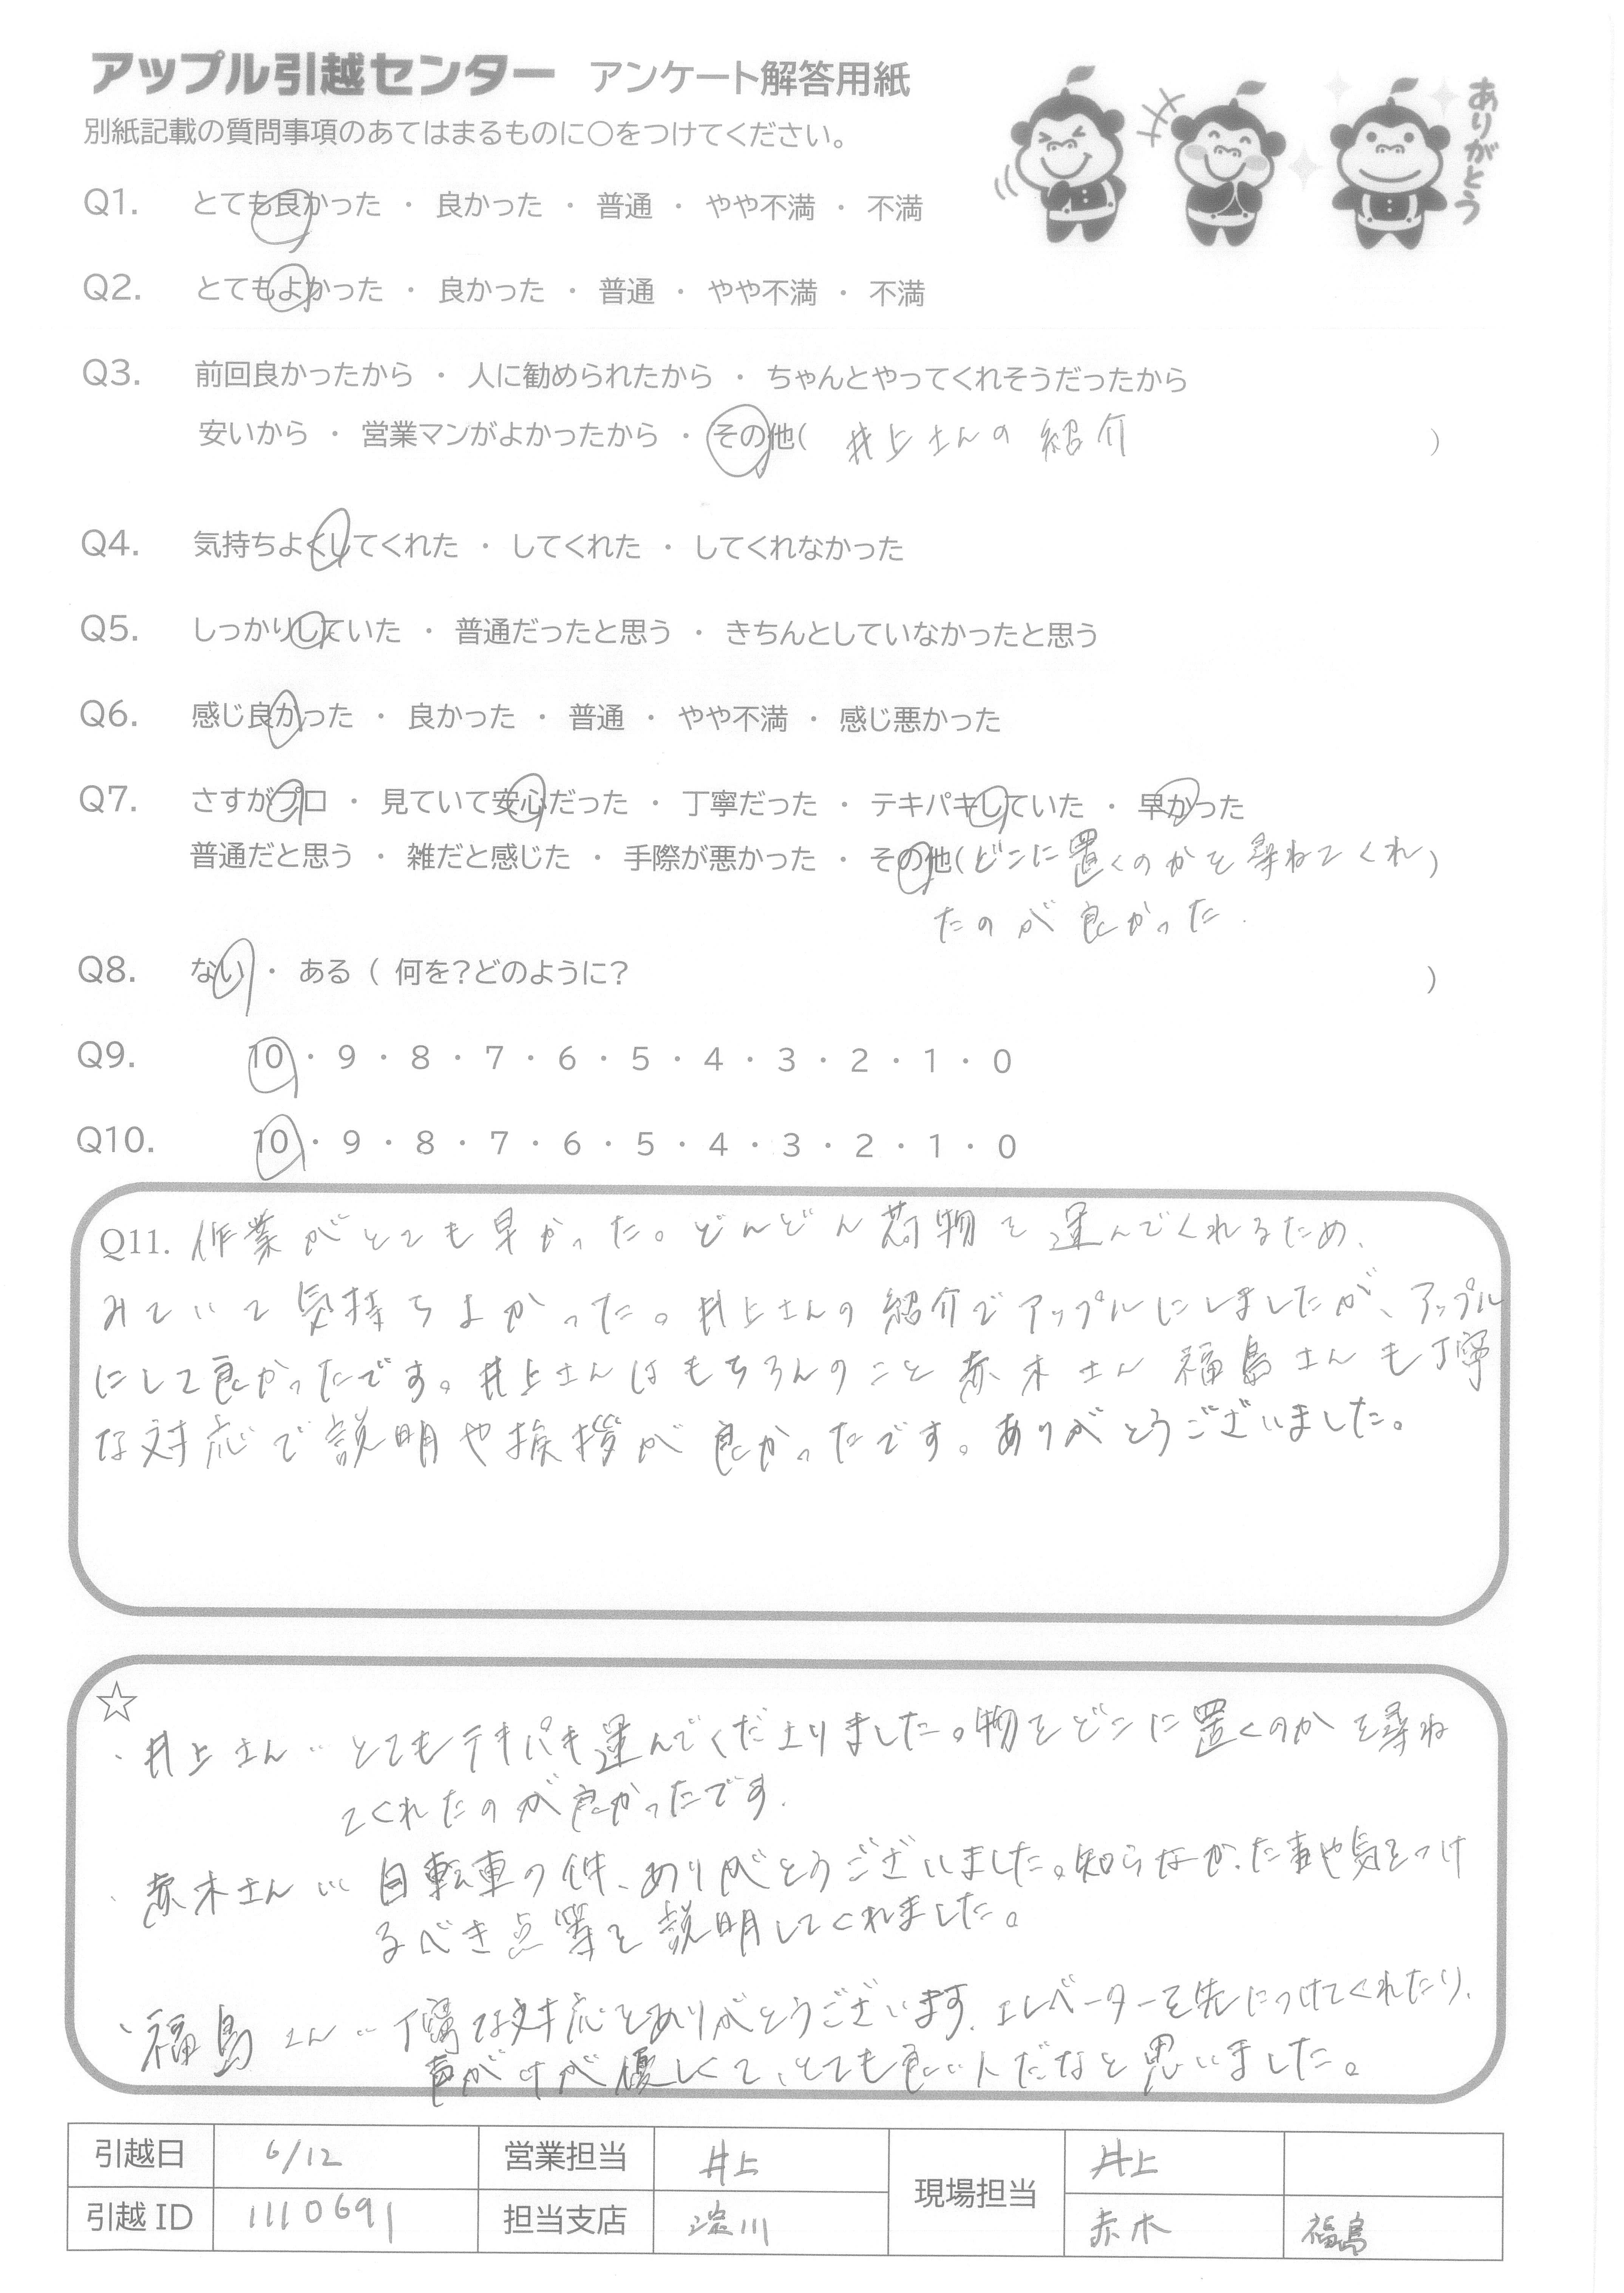 アップル引越センター アンケート解答用紙
別紙記載の質問事項のあてはまるものに○をつけてください。
ありがとう
Q1. とても良かった ・ 良かった ・ 普通 ・ やや不満 ・ 不満
Q2. とてもよかった ・ 良かった ・ 普通 ・ やや不満 ・ 不満
Q3. 前回良かったから ・ 人に勧められたから ・ ちゃんとやってくれそうだったから
安いから ・ 営業マンがよかったから ・ その他( 井上さんの紹介 )
Q4. 気持ちよくしてくれた ・ してくれた ・ してくれなかった
Q5. しっかりしていた ・ 普通だったと思う ・ きちんとしていなかったと思う
Q6. 感じ良かった ・ 良かった ・ 普通 ・ やや不満 ・ 感じ悪かった
Q7. さすがプロ ・ 見ていて安心だった ・ 丁寧だった ・ テキパキしていた ・ 早かった
普通だと思う ・ 雑だと感じた ・ 手際が悪かった ・ その他(どこに置くのかを尋ねてくれ)
たのが良かった.
Q8. ない ・ ある ( 何を?どのように? )
Q9. 10 ・ 9 ・ 8 ・ 7 ・ 6 ・ 5 ・ 4 ・ 3 ・ 2 ・ 1 ・ 0
Q10. 10 ・ 9 ・ 8 ・ 7 ・ 6 ・ 5 ・ 4 ・ 3 ・ 2 ・ 1 ・ 0
Q11. 作業がとても早かった。どんどん荷物を運んでくれるため、
みていて気持ちよかった。井上さんの紹介でアップルにしましたが、アップル
にして良かったです。井上さんはもちろんのこと赤木さん福島さんも丁寧
な対応で説明や挨拶が良かったです。ありがとうございました。
☆
・井上さん… とてもテキパキ運んでくださりました。物をどこに置くのかを尋ね
てくれたのが良かったです.
・赤木さん… 自転車の件、ありがとうございました。知らなかった事や気をつけ
るべき点等を説明してくれました。
・福島さん… 丁寧な対応をありがとうございます. エレベーターを先につけてくれたり、
声がけが優しくて、とても良い人だなと思いました。
引越日 6/12 営業担当 井上 現場担当 井上
引越ID 1110691 担当支店 淀川 赤木 福島